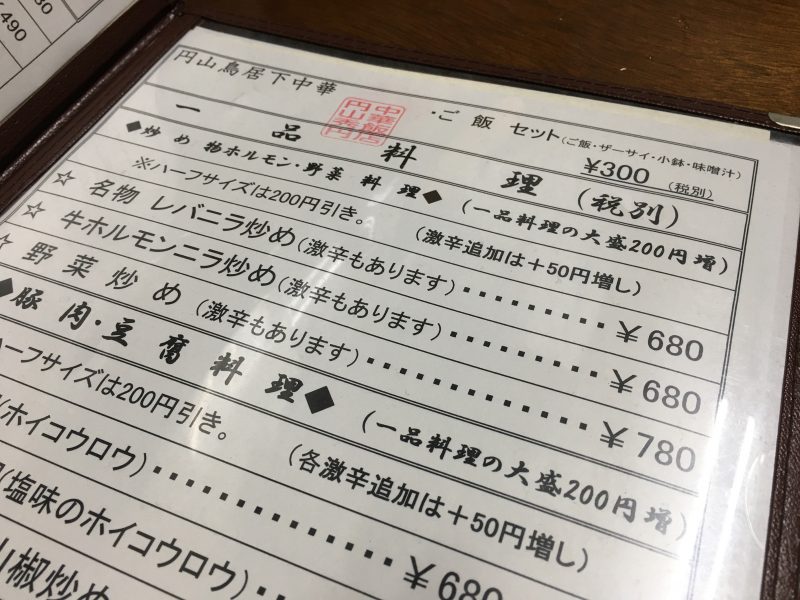 30
¥490
円山鳥居下中華
中華飯店
円山
・ご飯 セット(ご飯・ザーサイ・小鉢・味噌汁)
¥300 (税別)
一品料理 (税別)
◆炒め物ホルモン・野菜 料理◆ (一品料理の大盛200円増)
※ハーフサイズは200円引き。 (激辛追加は+50円増し)
☆ 名物 レバニラ炒め(激辛もあります)・・・・・・・・・ ¥680
☆ 牛ホルモンニラ炒め(激辛もあります)・・・・・・・・・ ¥680
☆ 野菜炒め(激辛もあります)・・・・・・・・・・・・ ¥780
◆豚肉・豆腐料理◆ (一品料理の大盛200円増)
ハーフサイズは200円引き。 (各激辛追加は+50円増し)
(ホイコウロウ)・・・・・・・・・・・・ ¥680
(塩味のホイコウロウ)・・・・・・
山椒炒め